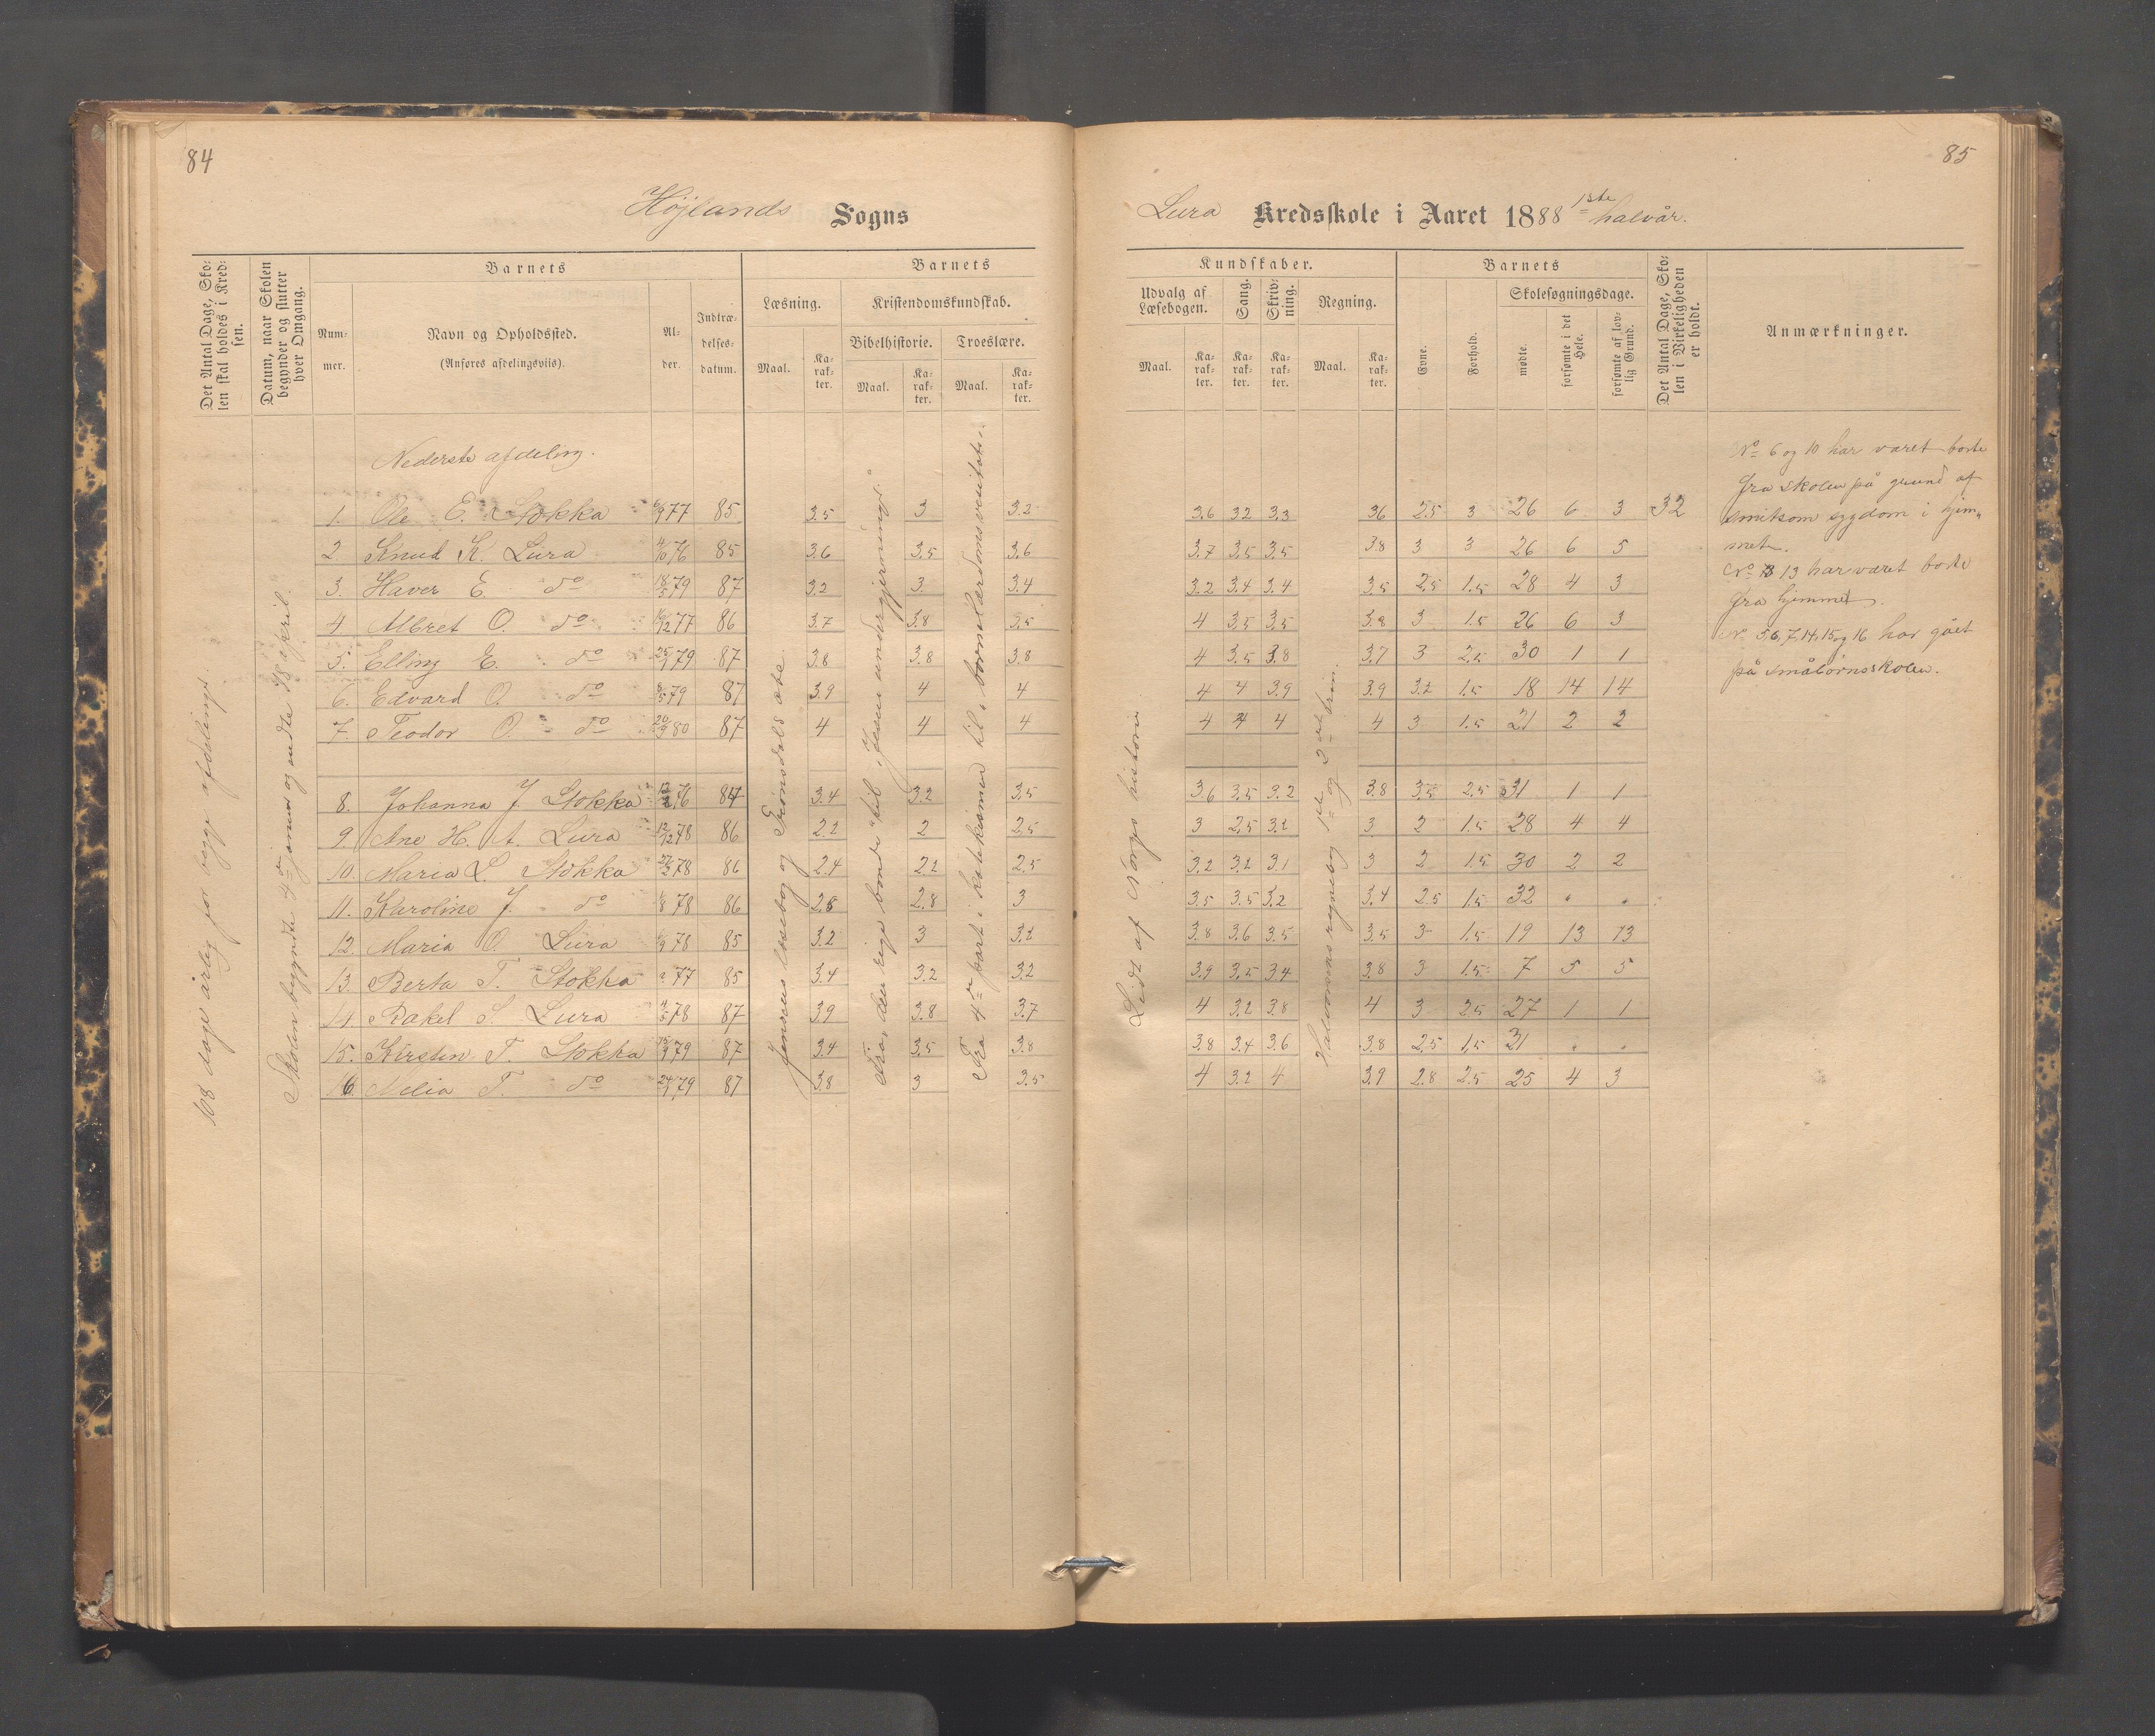 84
Höjlands Sogns
Det Antal Dage, Sko-
len skal holdes i Kred-
sen.
Datum, naar Skolen
begynder og slutter
hver Omgang.
Barnets
Num-
mer.
Navn og Opholdssted.
(Anføres afdelingsviis).
Al-
der.
Indtræ-
delses-
datum.
Barnets
Læsning.
Kristendomskundskab.
Bibelhistorie.
Troeslære.
Maal.
Ka-
rak-
ter.
Maal.
Ka-
rak-
ter.
Maal.
Ka-
rak-
ter.
108 dage årlig for begge afdelinger.
Skolen begyndte 4de januar og endte 18 april.
Jensens læsebog og
Fra "den rige bonde" til "Jesu undergjerninger."
Fra 4de part i katekismen til børnelærdomsventets
Nederste afdeling.
1. Ole E. Stokka 6/9 77 85 3.5 3 3.2
2 Knud K. Lura 4/10 76 85 3.6 3.5 3.6
3. Haver E. do 18/5 79 87 3.2 3. 3.4
4 Albret O. do 16/12 77 86 3.7 3.8 3.5
5. Elling E. do 25/1 79 87 3.8 3.8 3.8
6. Edvard O. do 8/5 79 87 3.9 4 4
7. Teodor O. do 20/9 80 87 4 4 4
8. Johanna J. Stokka 76 84 3.4 3.2 3.5
9. Ane H. A. Lura 12/12 78 86 2.2 2 2.5
10. Maria L. Stokka 27/2 78 86 2.4 2.2 2.5
11. Karoline J. do 78 86 2.8 2.8 3
12. Maria O. Lura 78 85 3.2 3 3.2
13. Berta T. Stokka 77 85 3.4 3.2 3.2
14. Rakel S. Lura 78 87 3.9 3.8 3.7
15. Kirsten T. Stokka 79 87 3.4 3.5 3.8
16. Melia T. do 24/1 79 87 3.8 3 3.5
85
Lura Kredsskole i Aaret 1888 1ste halvår.
Kundskaber.
Udvalg af
Læsebogen.
Sang.
Skriv-
ning.
Regning.
Maal.
Ka-
rak-
ter.
Ka-
rak-
ter.
Ka-
rak-
ter.
Maal.
Ka-
rak-
ter.
Barnets
Evne.
Forhold.
Skolesøgningsdage.
mødte.
forsømte i det
Hele.
forsømte af lov-
lig Grund.
Det Antal Dage, Sko-
len i Virkeligheden
er holdt.
Anmærkninger.
Lidt af Norges historie
Halvorsens regnebog 1ste og 2det trin.
3.6 3.2 3.3 3.6 2.5 3 26 6 3 32
3.7 3.5 3.5 3.8 3 3 26 6 5
3.2 3.4 3.4 3.5 2.5 1.5 28 4 3
4 3.5 3.5 3.8 3 1.5 26 6 3
4 3.5 3.8 3.7 3 2.5 30 1 1
4 4 3.9 3.9 3.2 1.5 18 14 14
4 4 4 4 3 1.5 21 2 2
3.6 3.5 3.2 3.8 3.5 2.5 31 1 1
3 2.5 3.2 3 2 1.5 28 4 4
3.2 3.2 3.1 3 2 1.5 30 2 2
3.5 3.5 3.2 3.4 2.5 1.5 32 . .
3.8 3.6 3.5 3.5 3 1.5 19 13 13
3.9 3.5 3.4 3.8 3 1.5 7 5 5
4 3.2 3.8 4 3 2.5 27 1 1
3.8 3.4 3.6 3.8 2.5 1.5 21 . .
4 3.2 4 3.9 2.8 2.5 25 4 3
No 6 og 10 har været borte
fra skolen på grund af
smitsom sygdom i hjem-
met.
No 13 har været borte
fra hjemmet.
N. 5,6,7,14,15 og 16 har gået
på småbørnsskolen.